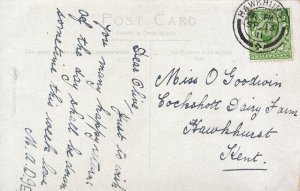 POST CARD
HAWKHU
Dear Olive
Just to wish
you many happy returns
of the day shall be down
sometime this week love
Miss O Goodwin
Cockshott Dairy Farm
Hawkhurst
Kent.